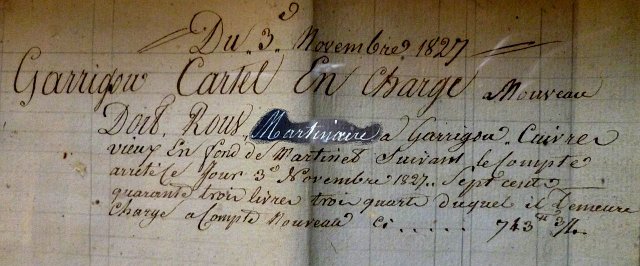 Du 3e Novembre 1827
Garrigou Cartel En Charge a Nouveau
Doit Roux Martinaire a Garrigou Cuivre
vieux En fond de Martinet Suivant le Compte
arrette Ce Jour 3e Novembre 1827.. Sept cent
quarante trois livres trois quarts duquel il Demeure
Charge a Compte Nouveau Ci ..... 743 tt 3/4